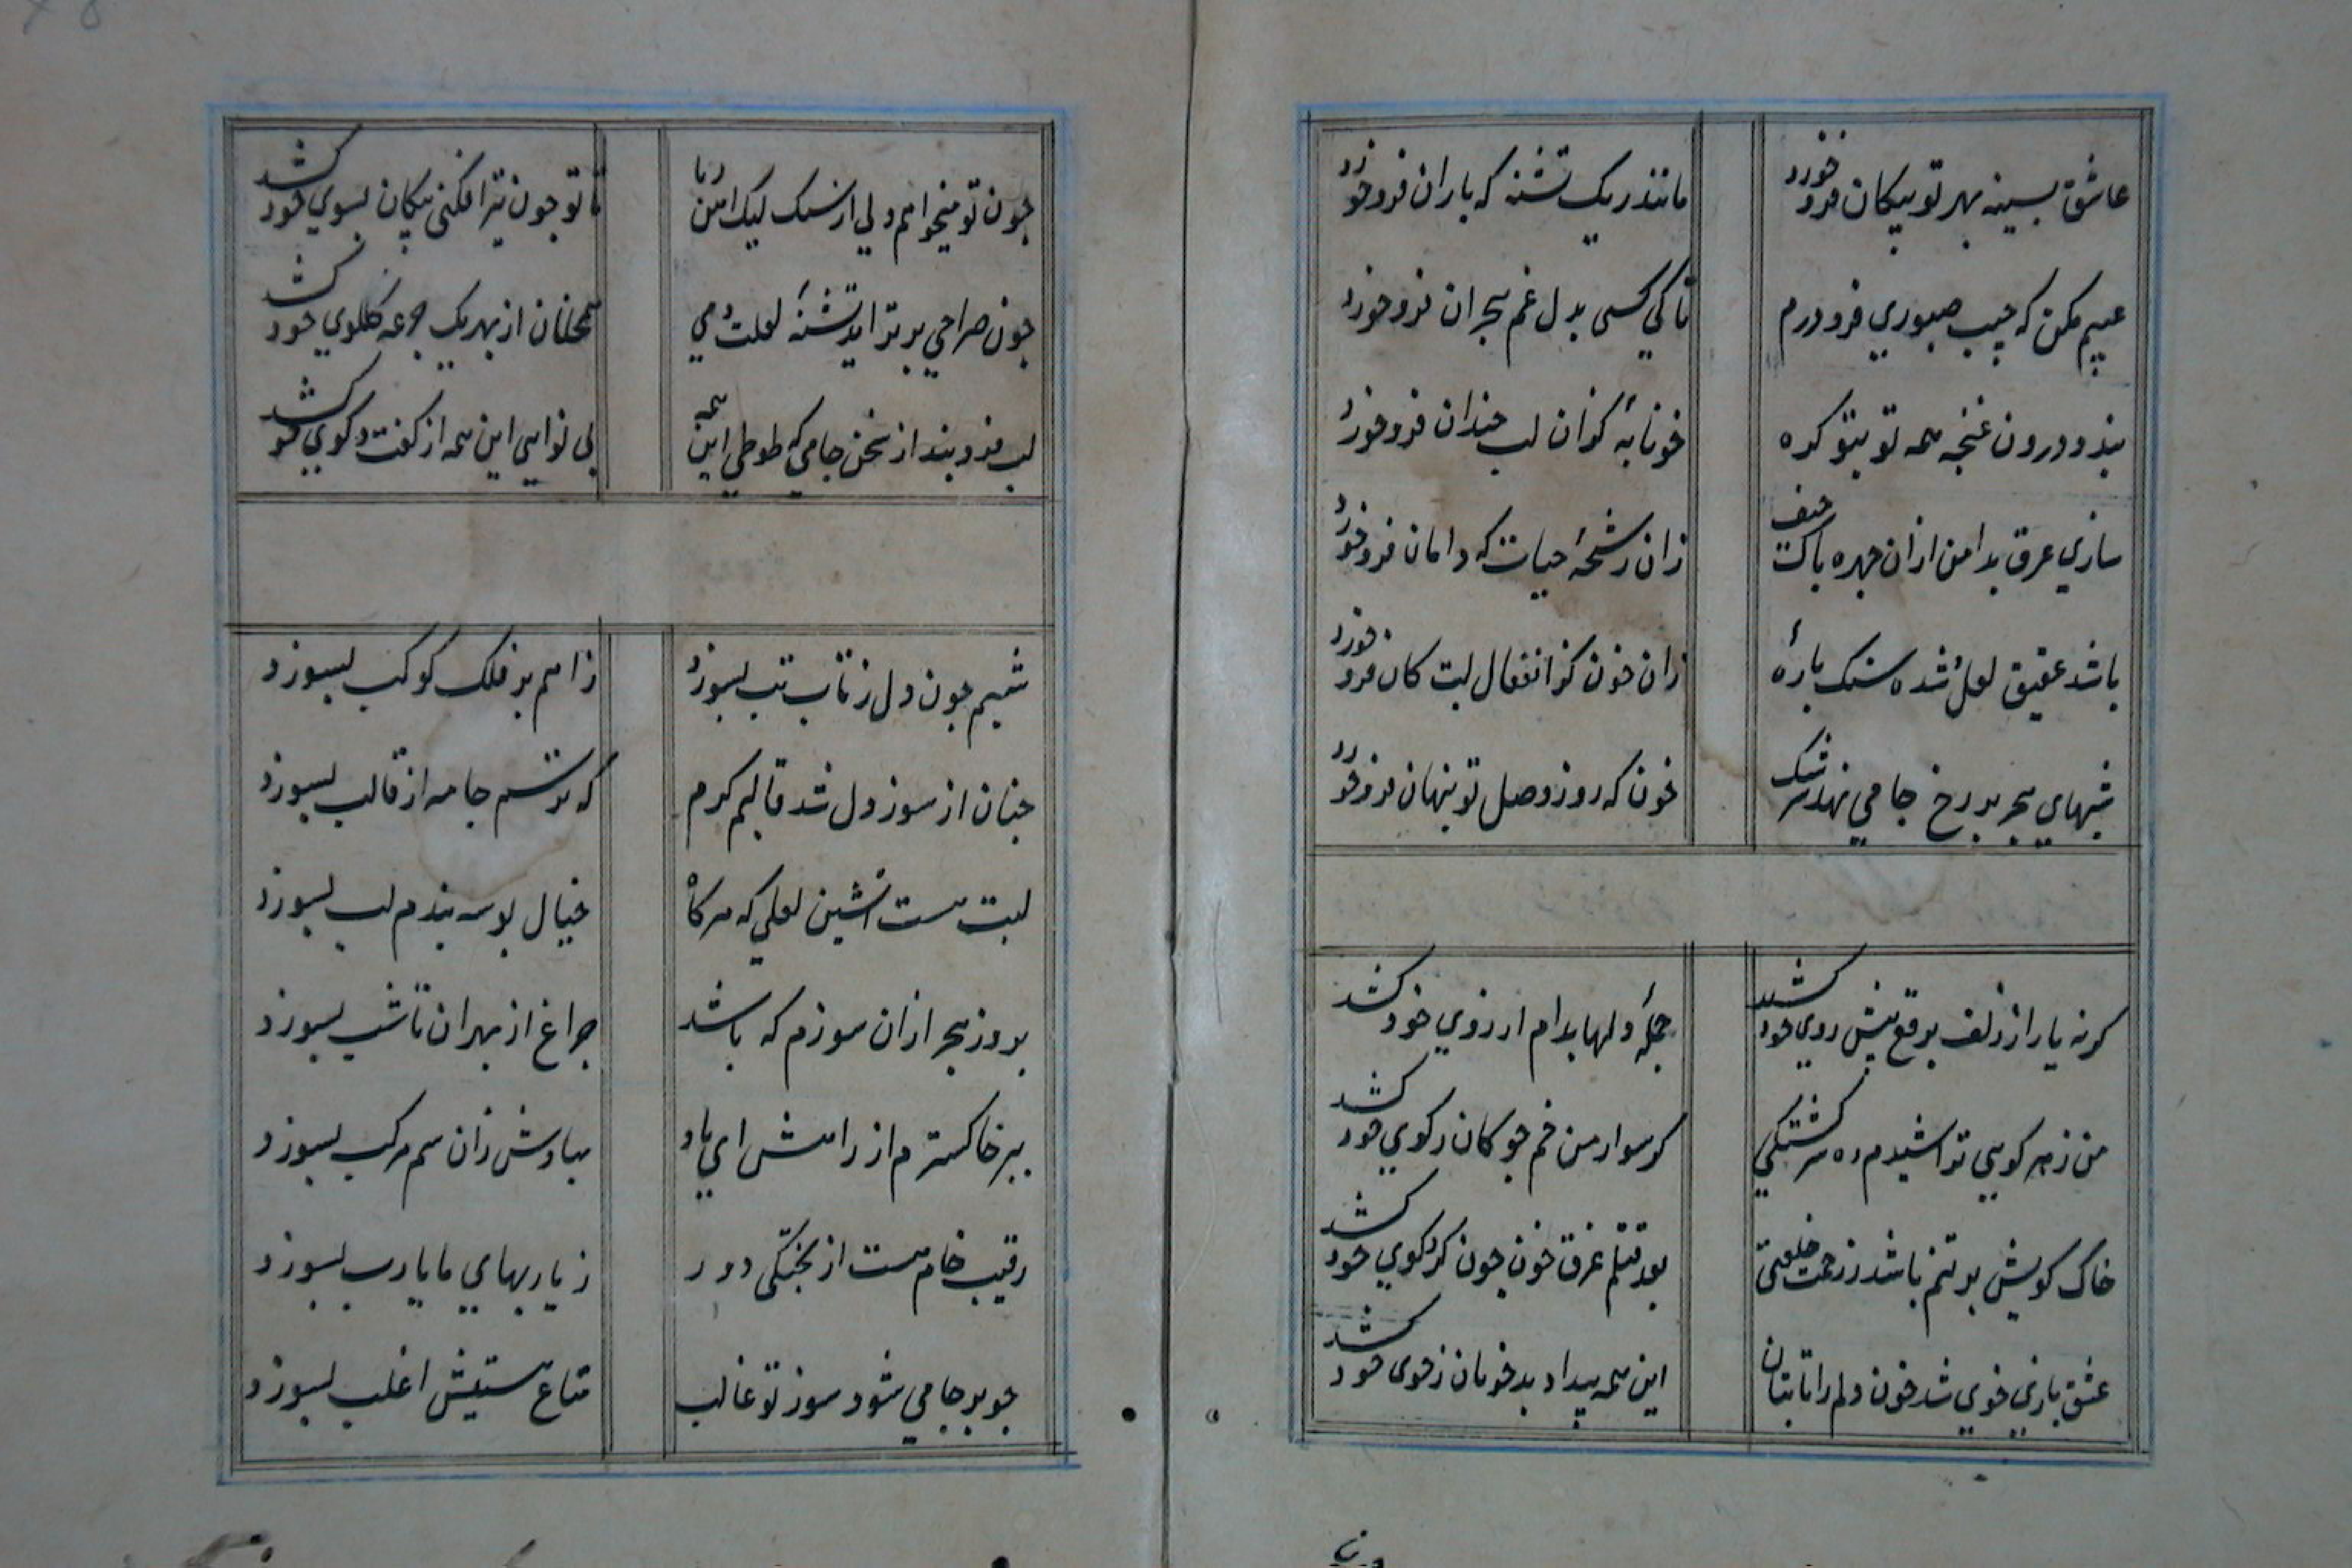 عاشق بسینه بهر تو پیکان فرو خورد مانند ریک تشنه که باران فرو خورد
عیبم مکن که جیب صبوری فرو درم تا کی کسی بدل غم هجران فرو خورد
بندد درون غنچه همه تو بتو کره خونابه کزان لب خندان فرو خورد
سازی عرق بدامن ازان چهره پاک حیف زان رشحه حیات که دامان فرو خورد
باشد عقیق لعل شده سنک پاره زان خون کز انفعال لبت کان فرو خورد
شبهای هجر بر رخ جامی نهد سرشک خون که روز وصل تو پنهان فرو خورد
کر نه یار از زلف برقع پیش روی خود کشد جمله دلها بدام ارزوی خود کشد
من ز سر کویی تراشیدم ده سرکشتکی کر سوار من خم چوکان ز کوی خود کشد
خاک کویش بر تنم باشد ز رحمت خلعتی بعد قتلم غرق خون چون کرد کوی خود کشد
عشق بازی خوی شد خون دلم را تا بتان این همه بیداد بد خویان ز خوی خود کشد
چون تو میخواهم ولی از سنک لیک امن ربا تا تو چون تیر افکنی پیکان بسوی خود کشد
چون صراحی بر تر اید تشنه لعلت می همچنان از بهر یک جرعه کلوی خود کشد
لب فرو بند از سخن جامی که طوطی این همه بی نوایی این همه از کفت و کوی خود کشد
شبم چون دل ز تاب تب بسوزد ز اهم بر فلک کوکب بسوزد
چنان از سوز دل شد قالبم کرم که ترسم جامه از قالب بسوزد
لبت هست اتشین لعلی که هر کاه خیال بوسه بندم لب بسوزد
بروز هجر ازان سوزم که باشد چراغ از بهر ان تا شب بسوزد
ببر خاکسترم از راهش ای باد مبادش زان سم مرکب بسوزد
رقیب خام هست از پختکی دور ز یاربهای ما یارب بسوزد
چو بر جامی شود سوز تو غالب متاع هستیش اغلب بسوزد